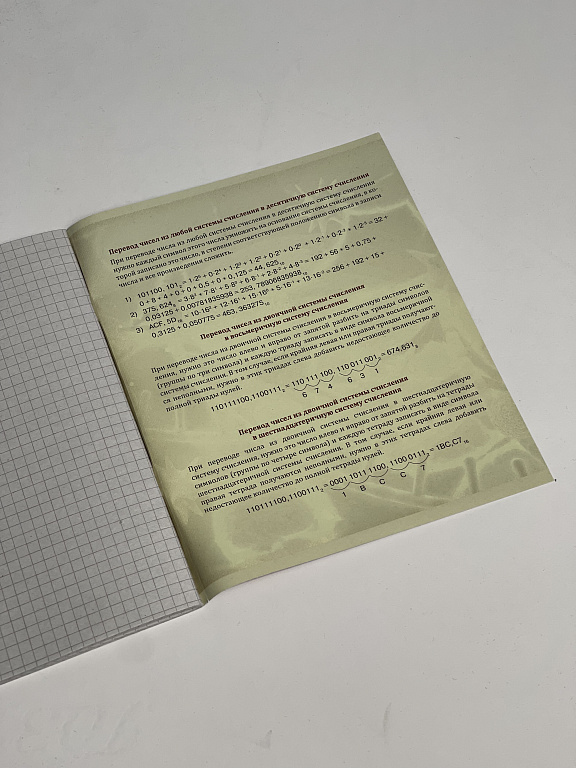 Перевод чисел из любой системы счисления в десятичную систему счисления
При переводе числа из любой системы счисления в десятичную систему счисления
нужно каждый символ этого числа умножить на основание системы счисления, в ко-
торой записано это число, в степени соответствующей положению символа в записи
числа и все произведения сложить.
1) 101100, 101₂ = 1·2⁵ + 0·2⁴ + 1·2³ + 1·2² + 0·2¹ + 0·2⁰ + 1·2⁻¹ + 0·2⁻² + 1·2⁻³ = 32 +
0 + 8 + 4 + 0 + 0 + 0,5 + 0 + 0,125 = 44, 625₁₀
2) 375, 624₈ = 3·8² + 7·8¹ + 5·8⁰ + 6·8⁻¹ + 2·8⁻² + 4·8⁻³ = 192 + 56 + 5 + 0,75 +
0,03125 + 0,00781835938 = 253, 78906835938₁₀
3) ACF, 5D₁₆ = 10·16² + 12·16¹ + 15·16⁰ + 5·16⁻¹ + 13·16⁻² = 256 + 192 + 15 +
0,3125 + 0,050775 = 463, 363275₁₀
Перевод чисел из двоичной системы счисления
в восьмеричную систему счисления
При переводе числа из двоичной системы счисления в восьмеричную систему счис-
ления, нужно это число влево и вправо от запятой разбить на триады символов
(группы по три символа) и каждую триаду записать в виде символа восьмеричной
системы счисления. В том случае, если крайняя левая или правая триады получают-
ся неполными, нужно в этих триадах слева добавить недостающее количество до
полной триады нулей.
110111100,1100111₂ = 110 111 100, 110 011 001₂ = 674,631₈
6 7 4 6 3 1
Перевод чисел из двоичной системы счисления
в шестнадцатеричную систему счисления
При переводе числа из двоичной системы счисления в шестнадцатеричную
систему счисления, нужно это число влево и вправо от запятой разбить на тетрады
символов (группы по четыре символа) и каждую тетраду записать в виде символа
шестнадцатеричной системы счисления. В том случае, если крайняя левая или
правая тетрада получаются неполными, нужно в этих тетрадах слева добавить
недостающее количество до полной тетрады нулей.
110111100,1100111₂ = 0001 1011 1100, 1100 0111₂ = 1BC,C7₁₆
1 B C C 7